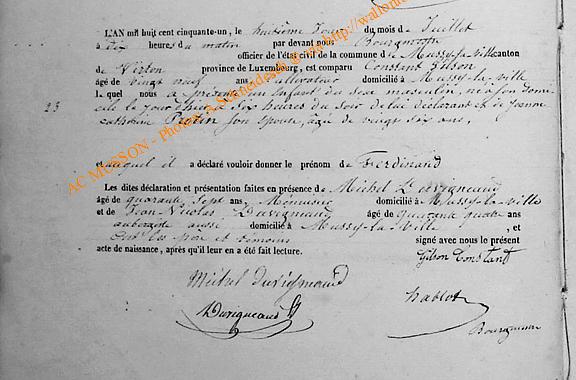 L'AN mil huit cent cinquante-un, le huitième Jour du mois de Juillet
à Dix heures du matin par devant nous Bourgmestre
officier de l'état civil de la commune de Mussy-la-Ville canton
de Virton province de Luxembourg, est comparu Constant Gilson
âgé de vingt neuf ans domicilié à Mussy-la-Ville
lequel nous a présenté un Enfant du sexe masculin, né à son domi-
cile le jour d'hier à Six heures du Soir de lui déclarant et de Jeanne
23
Catherine Protin son épouse, âgée de vingt six ans,
et auquel il a déclaré vouloir donner le prénom de Ferdinand
Les dites déclaration et présentation faites en présence de Michel Duvigneaud
âgé de quarante Sept ans, Menuisier domicilié à Mussy-la-Ville
et de Jean Nicolas Duvigneaud âgé de quarante quatre ans
aubergiste aussi domicilié à Mussy-la-Ville, et
ont les père et témoins signé avec nous le présent
acte de naissance, après qu'il leur en a été fait lecture.
Gilson Constant
Michel Duvignaud
Duvigneaud
Bourgmestre
AC MUSSON - Photos A.Schneidesch @ http://wallonie